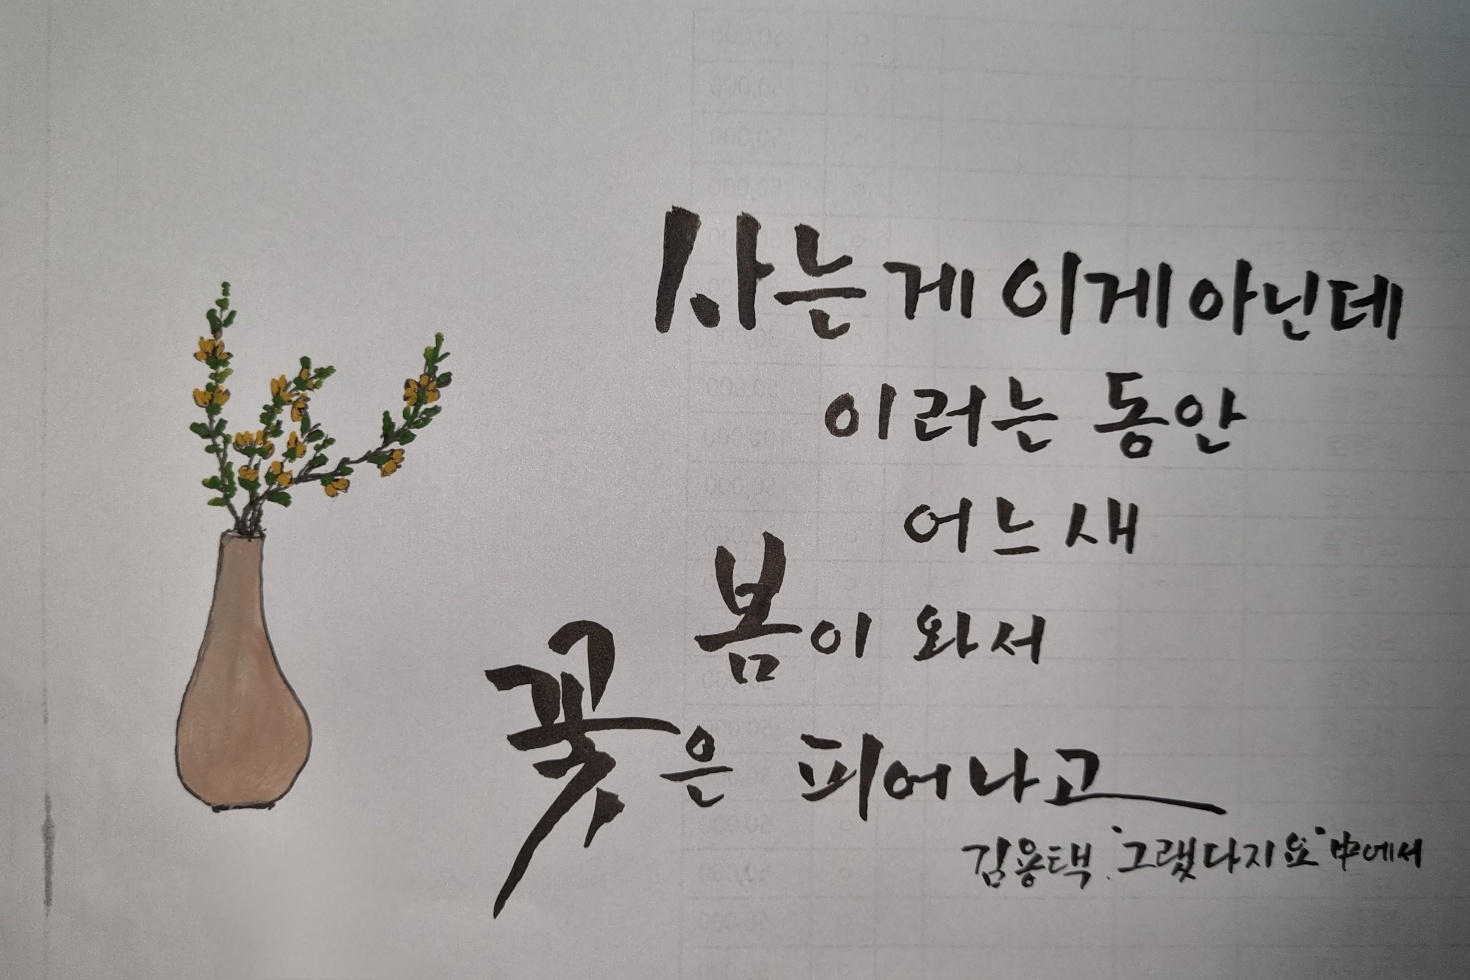 사는게 이게 아닌데
이러는 동안
어느새
봄이 와서
꽃은 피어나고
김용택. "그랬다지요" 中에서